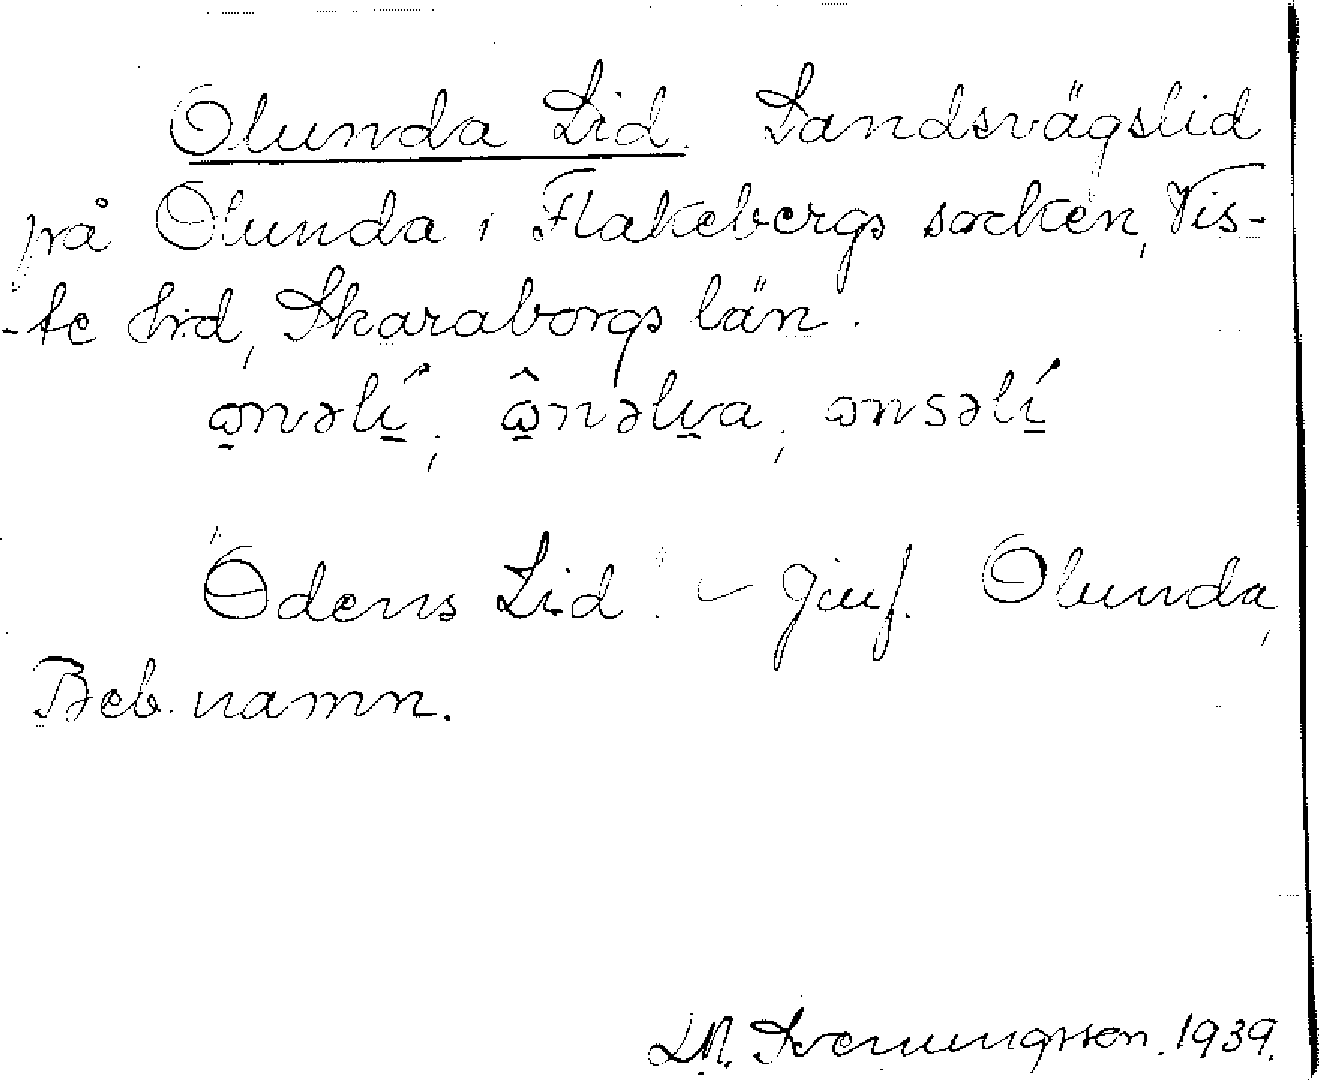 Olunda Lid. Landsvägslid
på Olunda i Flakebergs socken, Vis-
-te hrd, Skaraborgs län.
ɷnəlí; ɷ̂nəlıva; ɷnsəlí
"Odens Lid". – Jmf. Olunda,
Beb. namn.
Svenungsson. 1939.